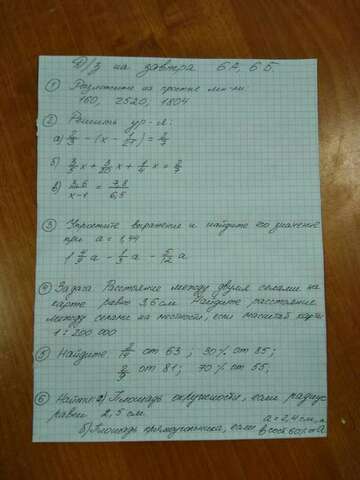 Д/з на завтра 6А, 6Б.
① Разложите на простые мн-ли
160, 2520, 1804
② Решить ур-я:
а) 2/3 - (x - 1/27) = 2/9
б) 3/5 x + 3/20 x + 1/4 x = 2/7
в) 3,6/x-1 = 7,8/6,5
③ Упростите выражение и найдите его значение
при a = 1,44
1 4/9 a - 1/3 a - 5/12 a
④ Задача Расстояние между двумя селами на
карте равно 3,6 см. Найдите расстояние
между селами на местности, если масштаб карты
1 : 200 000
⑤ Найдите от 63 ; 30% от 85;
от 81; 70% от 55;
⑥ Найти а) Площадь окружности, если радиус
равен 2,5 см.
а = 2,4 см,
б) Площадь прямоугольника, если в сост 60% от а.